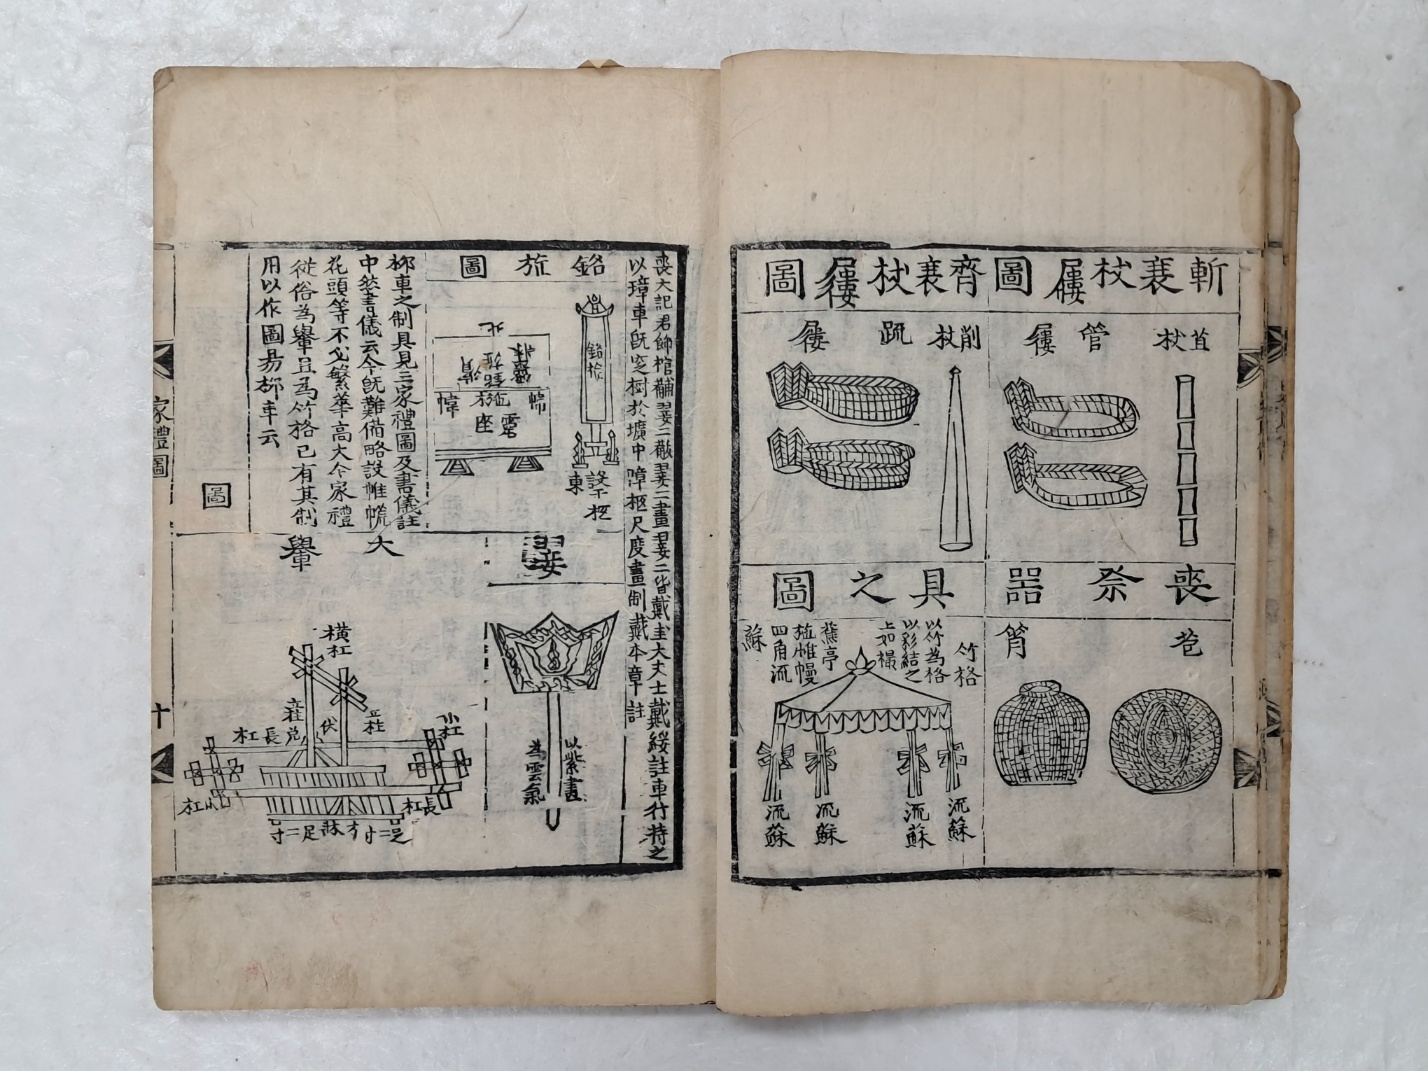 斬衰杖屨圖
苴杖
管屨
齊衰杖屨圖
削杖
䟽屨
喪祭器
苞
筲
具之圖
竹格
以竹為格
以彩結之
上如撮
蕉亭
施帷幔
四角流
蘇
流蘇
流蘇
流蘇
流蘇
喪大記君飾棺黼翣二黻翣二畫翣二皆戴圭大夫士戴綏註車行持之
以璋車旣窆樹於壙中障柩尺度畫制戴本章註
銘旌圖
銘旌
跗
柩
東
北
靈座
帷
翣
以紫畫
為雲氣
柳車之制具見三家禮圖及書儀註
中然書儀云今旣難備略設帷㡆
花頭等不必繁華高大今家禮
從俗為轝且為竹格已有其制
用以作圖易柳車云
大轝
圖
橫杠
立柱
立柱
伏兔
長杠
小杠
小杠
長杠
家禮圖
十